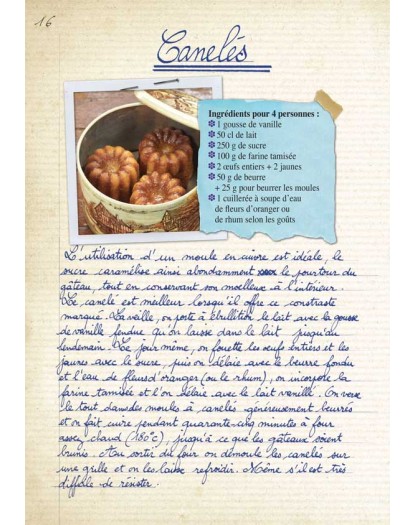 16
Canelés
Ingrédients pour 4 personnes :
1 gousse de vanille
50 cl de lait
250 g de sucre
100 g de farine tamisée
2 œufs entiers + 2 jaunes
50 g de beurre
+ 25 g pour beurrer les moules
1 cuillerée à soupe d'eau
de fleurs d'oranger ou
de rhum selon les goûts
L'utilisation d'un moule en cuivre est idéale, le
sucre caramélise ainsi abondamment le pourtour du
gâteau, tout en conservant son moelleux à l'intérieur.
Le canelé est meilleur lorsqu'il offre ce constraste
marqué. La veille, on porte à ébullition le lait avec la gousse
de vanille fendue qu'on laisse dans le lait jusqu'au
lendemain. Le jour même, on fouette les œufs entiers et les
jaunes avec le sucre, puis on délaie avec le beurre fondu
et l'eau de fleurs d'oranger (ou le rhum), on incorpore la
farine tamisée et l'on délaie avec le lait vanillé. On verse
le tout dans des moules à canelés généreusement beurrés
et on fait cuire pendant quarante-cinq minutes à four
assez chaud (180°c), jusqu'à ce que les gâteaux soient
brunis. Au sortir du four on démoule les canelés sur
une grille et on les laisse refroidir. Même s'il est très
difficile de résister.